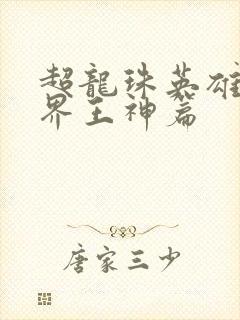 超龍珠英雄
界王神篇
唐家三少